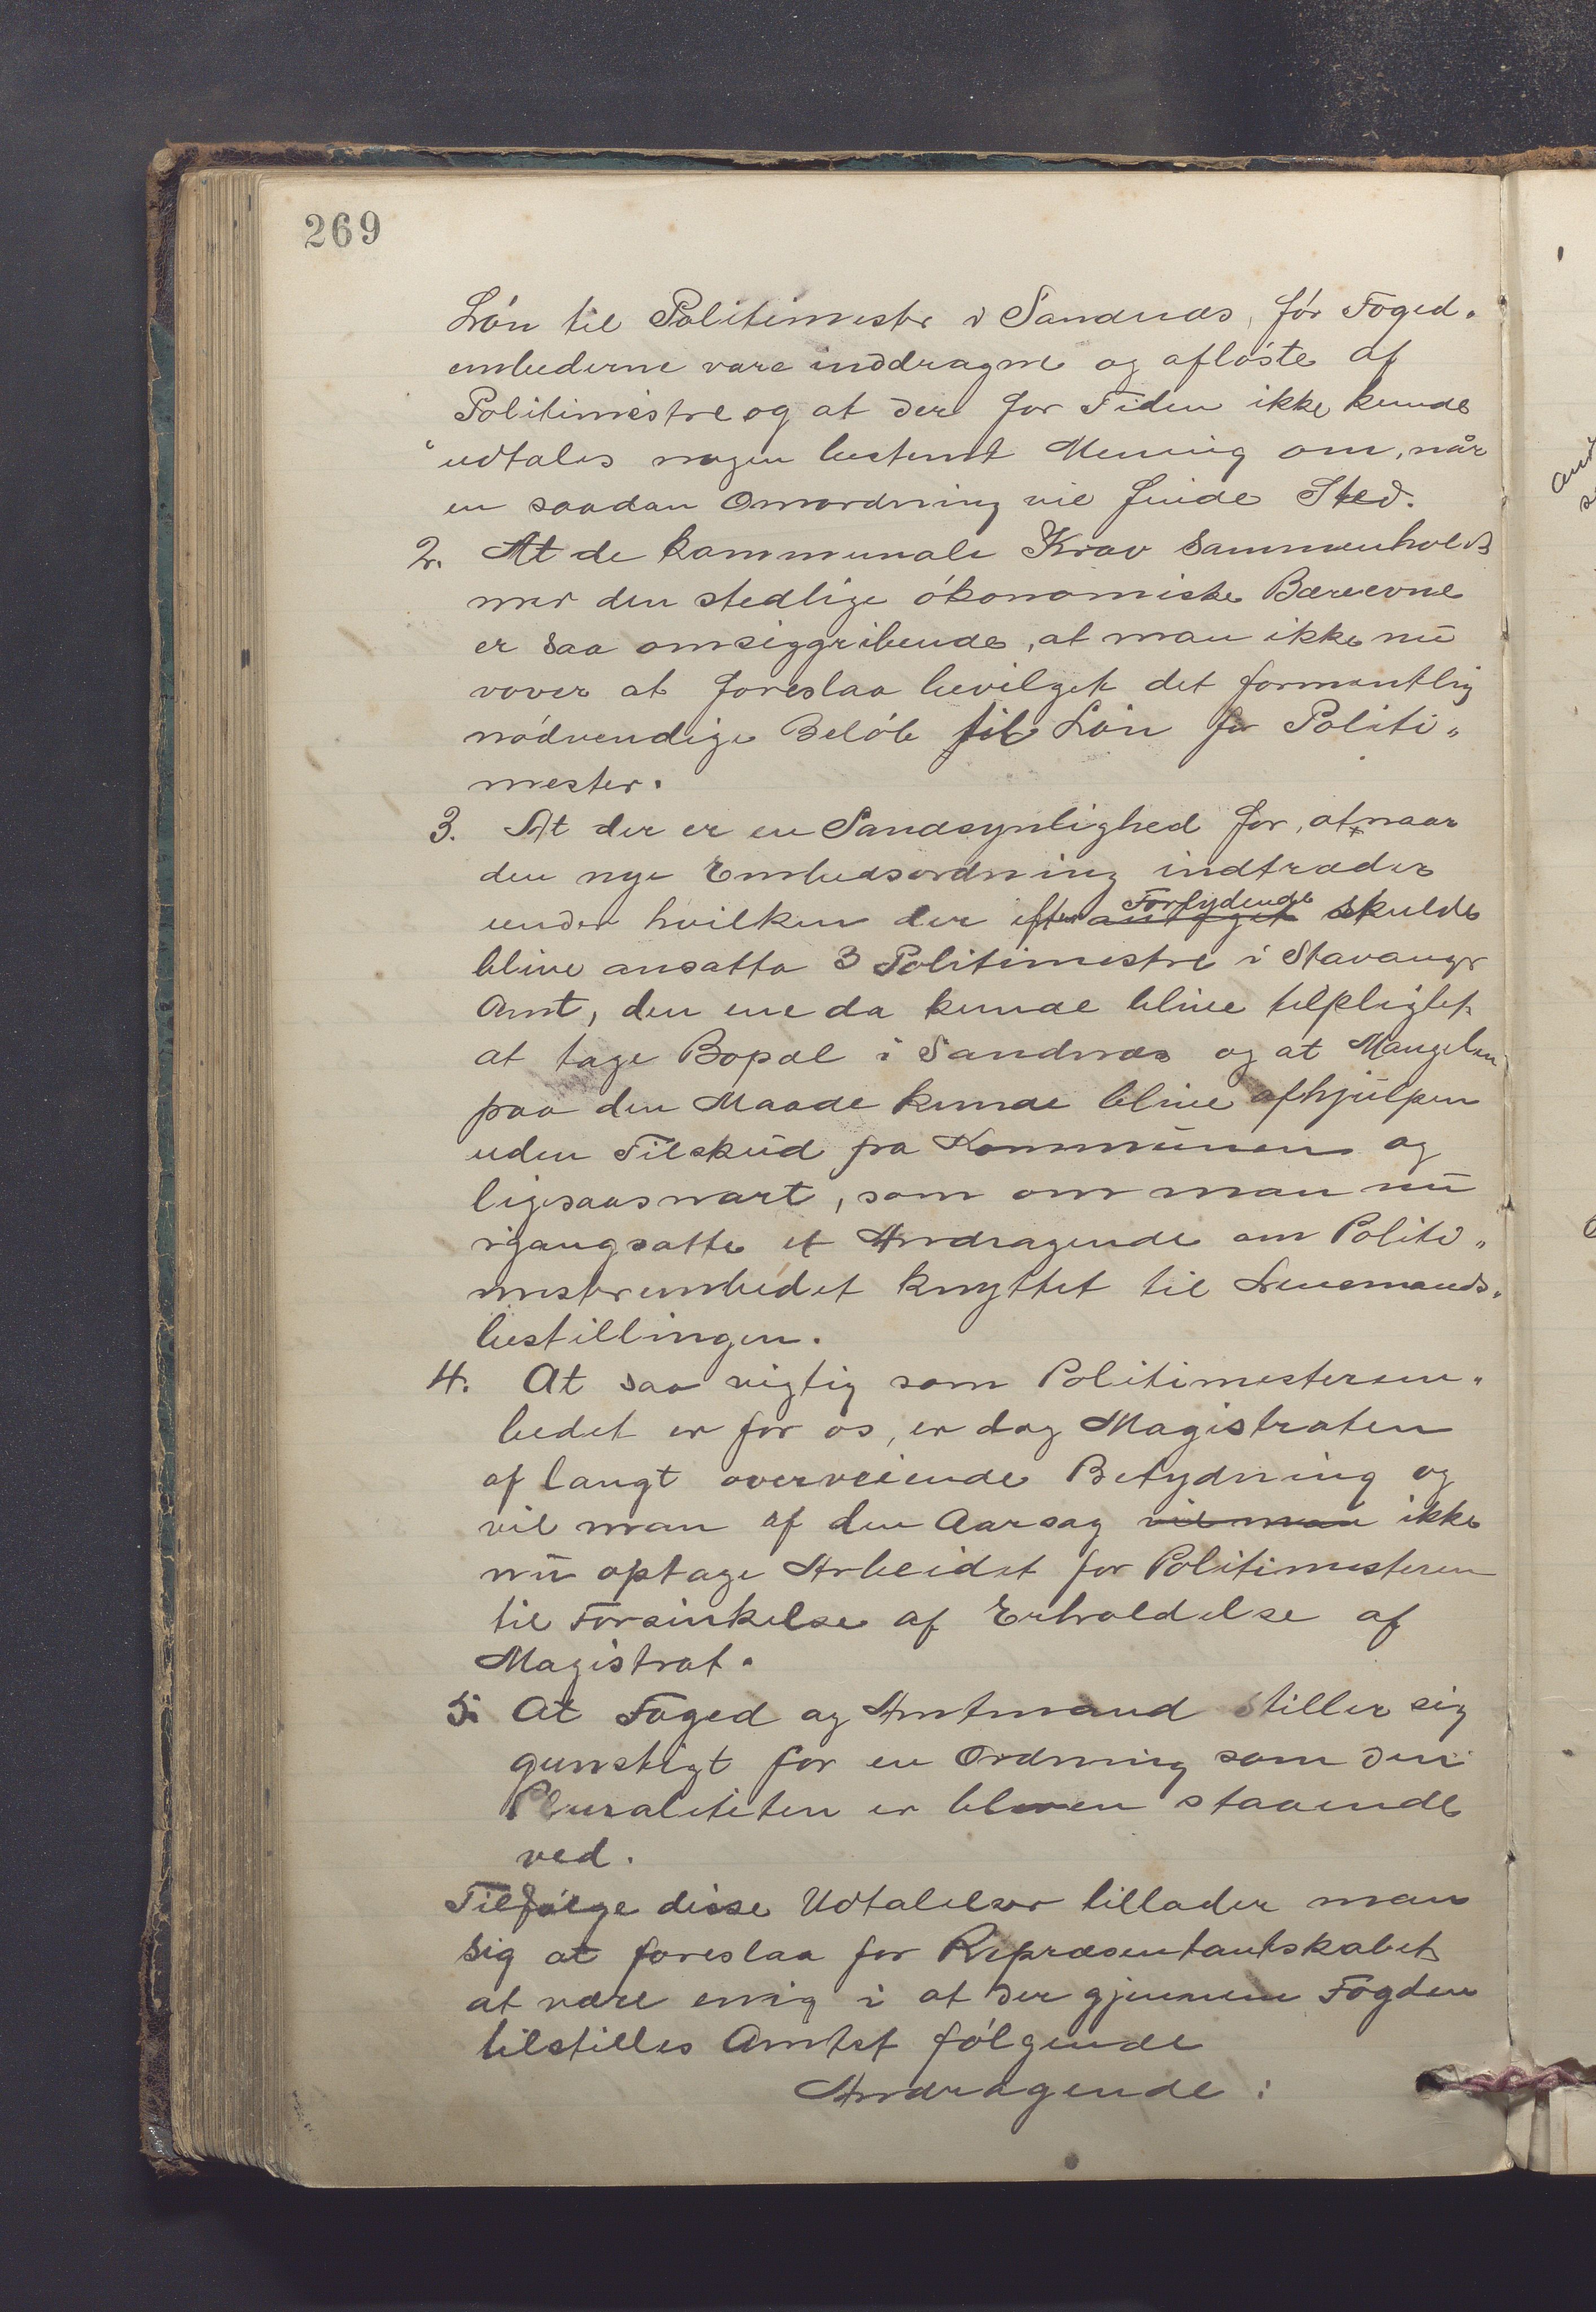 269
Løn til Politimester i Sandnæs, før Foged-
embederne vare inddragne og afløste af
Politimestre og at der for Tiden ikke kunde
udtales nogen bestemt Mening om, når
en saadan Omordning vil finde Sted.
2. At de kommunale Krav sammenholdt
med den stedlige økonomiske Bæreevne
er saa omsiggribende, at man ikke nu
vover at foreslaa bevilget det formentlig
nødvendige Beløb til Løn for Politi„
mester.
3. At der er en Sandsynlighed for, at naar
den nye Embedsordning indtræder
under hvilken der efter Forlydende skulde
blive ansatte 3 Politimestre i Stavanger
Amt, den ene da kunde blive tilpligtet
at tage Bopæl i Sandnæs og at Mangelen
paa den Maade kunde blive afhjulpen
uden Tilskud fra Kommunen og
ligesaasnart, som om man nu
igangsatte et Andragende om Politi„
mesterembedet knyttet til Lensmands-
bestillingen.
4. At saa vigtig som Politimesterem„
bedet er for os, er dog Magistraten
af langt overveiende Betydning og
vil man af den Aarsag vil man ikke
nu optage Arbeidet for Politimesteren
til Forsinkelse af Erholdelse af
Magistrat.
5. At Foged og Amtmand stiller sig
gunstigt for en Ordning som den
Pluraliteten er bleven staaende
ved.
Tilfølge disse Udtalelser tillader man
sig at foreslaa for Repræsentantskabet
at være enig i at der gjennem Fogden
tilstilles Amtet følgende
Andragende: